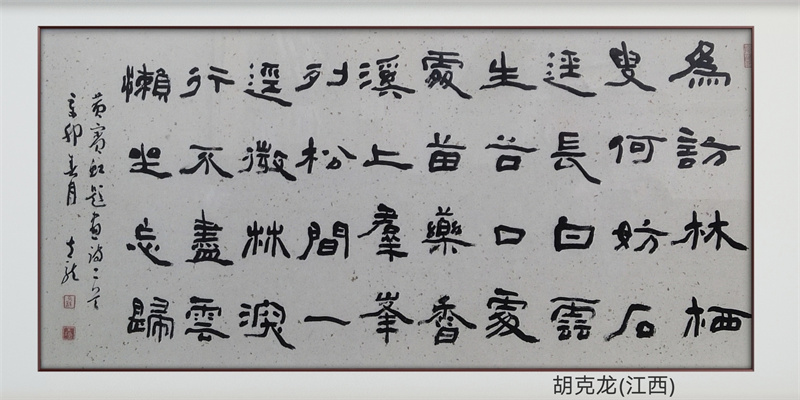 為訪林栖
叟何妨石
逕長白雲
生谷口處
處苗藥香
溪上羣峯
列松間一
逕微林深
行不盡雲
懶坐忘歸
黄賓虹題畫詩二首
辛卯春月 克龍
胡克龙(江西)